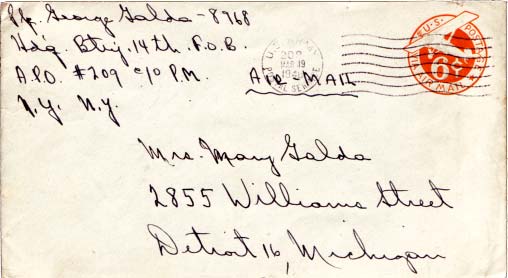 Pfc. George Galda - 8768
Hdq. Btry. 14th. F.O.B.
A.P.O. #209 c/o P.M.
N.Y. N.Y.
AIR-MAIL
U.S. ARMY
209
MAR 19
POSTAL SERVICE
U.S. POSTAGE
6
VIA AIR MAIL
Mrs. Mary Galda
2855 Williams Street
Detroit 16, Michigan